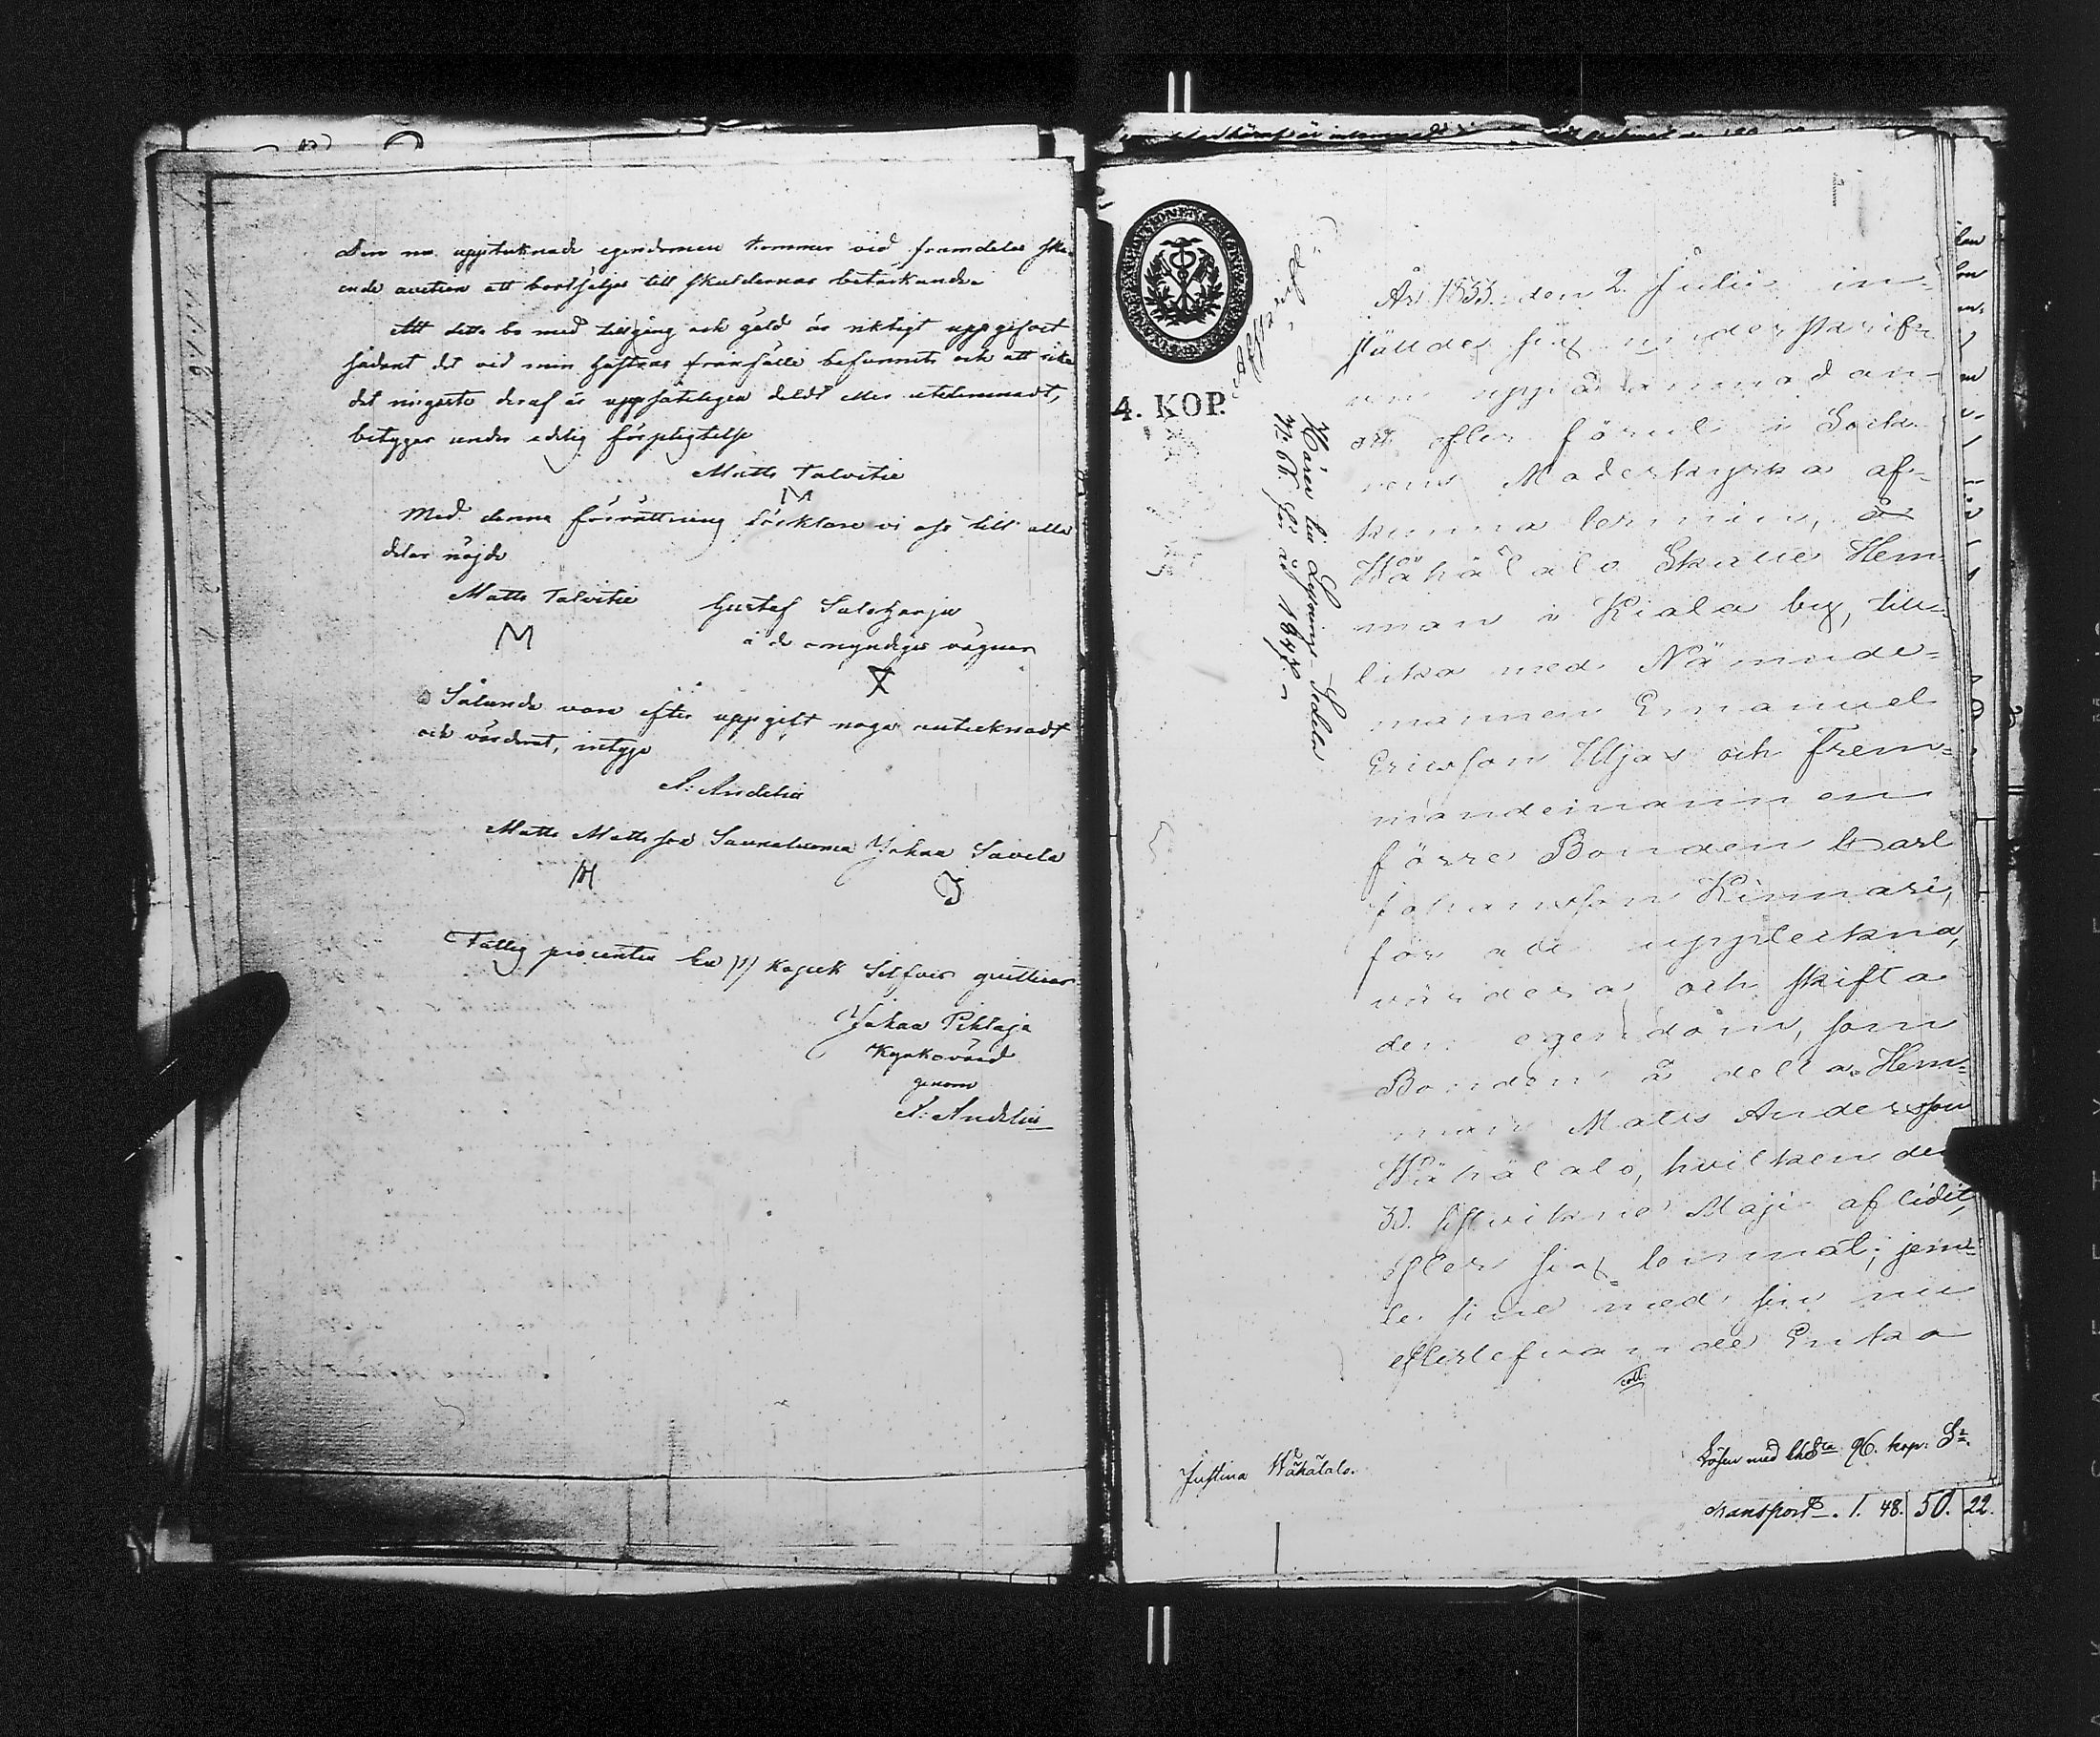 Den nu upptecknade egendomen kommer vid framdeles ske-
ende auction att bortsäljas till skuldernas betäckande.
Att detta bo med tillgång och gäld är riktigt uppgifvet
sådant det vid min hustrus frånfälle befunnits och att icke
det ringaste deraf är uppsåteligen doldt eller utelemnadt,
betygar under edelig förpligtelse
Matts Talvitie
M
Med denna förrättning förklare vi oss till alla
delar nöjde
Matts Talvitie Gustaf Saloharju
M å de omyndiges vägnar
Sålunda vara efter uppgift noga antecknadt
och värderat, intyga
A: Andelin
Matts Mattsson Saunaluoma Johan Savela
M J
Fattig procenten En 1/ kopek Silfver quitteras
Johan Pihlaja
Kyrkovärd
genom
A: Andelin
4. KOP.
Hörer till Lysnings-Sedeln
N:o för år 1847.
År 1833. den 2. Julii in-
stälde sig underskrifv-
ne uppå anmodan
och efter förut i Sock-
nens Moderkyrka af-
kunna termin, å
Wähätalo Skatte Hem-
man i Kiala by, till-
lika med Nämnde-
mannen Emanuel
Ericsson Uljas och Frem-
mandemannen
förre Bonden Carl
Johansson Kinnari,
för att uppteckna,
värdera och skifta
den egendom, som
Bonden å detta Hem-
man Matts Andersson
Wähätalo, hvilken den
30. sistvikne Maji aflidit,
efter sig lemnat; jem-
te sine med sin nu
efterlefvande Enka
coll.
Justina Wähätalo.
Lösen med Ch. S:ta 96. kop: S:r.
Transport. 1. 48. 50. 22.